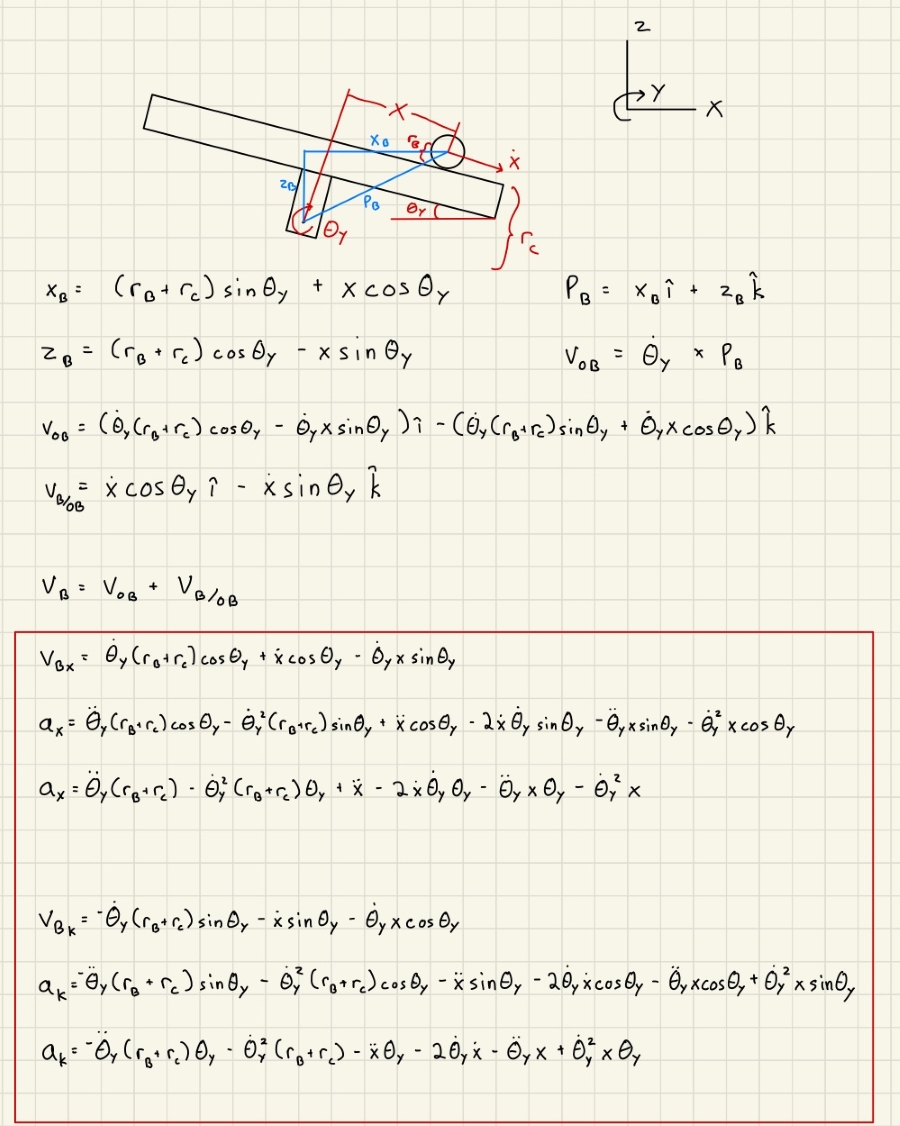 Z
Y
X
x
x_B
r_B
ẋ
z_B
P_B
θ_y
θ_y
r_c
x_B = (r_B + r_c) sin θ_y + x cos θ_y
P_B = x_B î + z_B k̂
z_B = (r_B + r_c) cos θ_y - x sin θ_y
V_OB = θ̇_y × P_B
V_OB = (θ̇_y(r_B+r_c) cos θ_y - θ̇_y x sin θ_y) î - (θ̇_y(r_B+r_c) sin θ_y + θ̇_y x cos θ_y) k̂
V_B/OB = ẋ cos θ_y î - ẋ sin θ_y k̂
V_B = V_OB + V_B/OB
V_Bx = θ̇_y(r_B+r_c) cos θ_y + ẋ cos θ_y - θ̇_y x sin θ_y
a_x = θ̈_y(r_B+r_c) cos θ_y - θ̇_y²(r_B+r_c) sin θ_y + ẍ cos θ_y - 2ẋ θ̇_y sin θ_y - θ̈_y x sin θ_y - θ̇_y² x cos θ_y
a_x = θ̈_y(r_B+r_c) - θ̇_y²(r_B+r_c) θ_y + ẍ - 2ẋ θ̇_y θ_y - θ̈_y x θ_y - θ̇_y² x
V_Bk = -θ̇_y(r_B+r_c) sin θ_y - ẋ sin θ_y - θ̇_y x cos θ_y
a_k = -θ̈_y(r_B + r_c) sin θ_y - θ̇_y²(r_B+r_c) cos θ_y - ẍ sin θ_y - 2θ̇_y ẋ cos θ_y - θ̈_y x cos θ_y + θ̇_y² x sin θ_y
a_k = -θ̈_y(r_B+r_c) θ_y - θ̇_y²(r_B+r_c) - ẍ θ_y - 2θ̇_y ẋ - θ̈_y x + θ̇_y² x θ_y